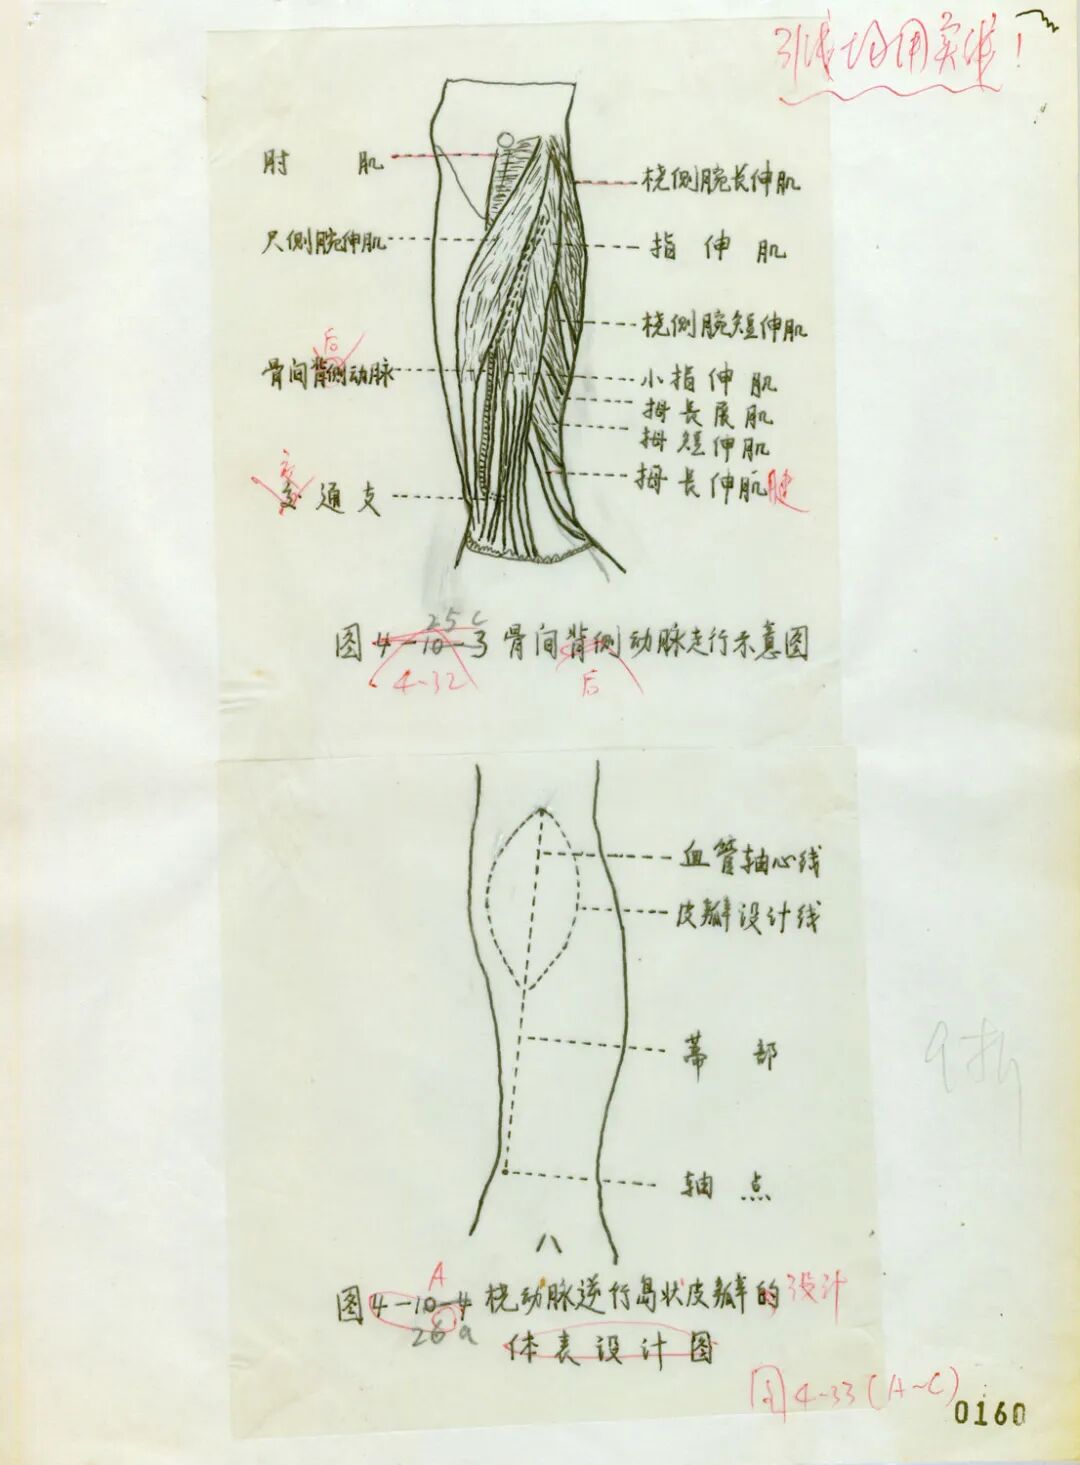 引线均用实线!
肘 肌
桡侧腕长伸肌
尺侧腕伸肌
指 伸 肌
桡侧腕短伸肌
后
骨间背侧动脉
小指伸肌
拇长展肌
拇短伸肌
交
交通支
拇长伸肌腱
25 c
图4-10-3 骨间背侧动脉走行示意图
4-32
后
血管轴心线
皮瓣设计线
蒂 部
轴 点
A
图4-10-4 桡动脉逆行岛状皮瓣的设计
26 a
体表设计图
图4-33(A~C)
0160